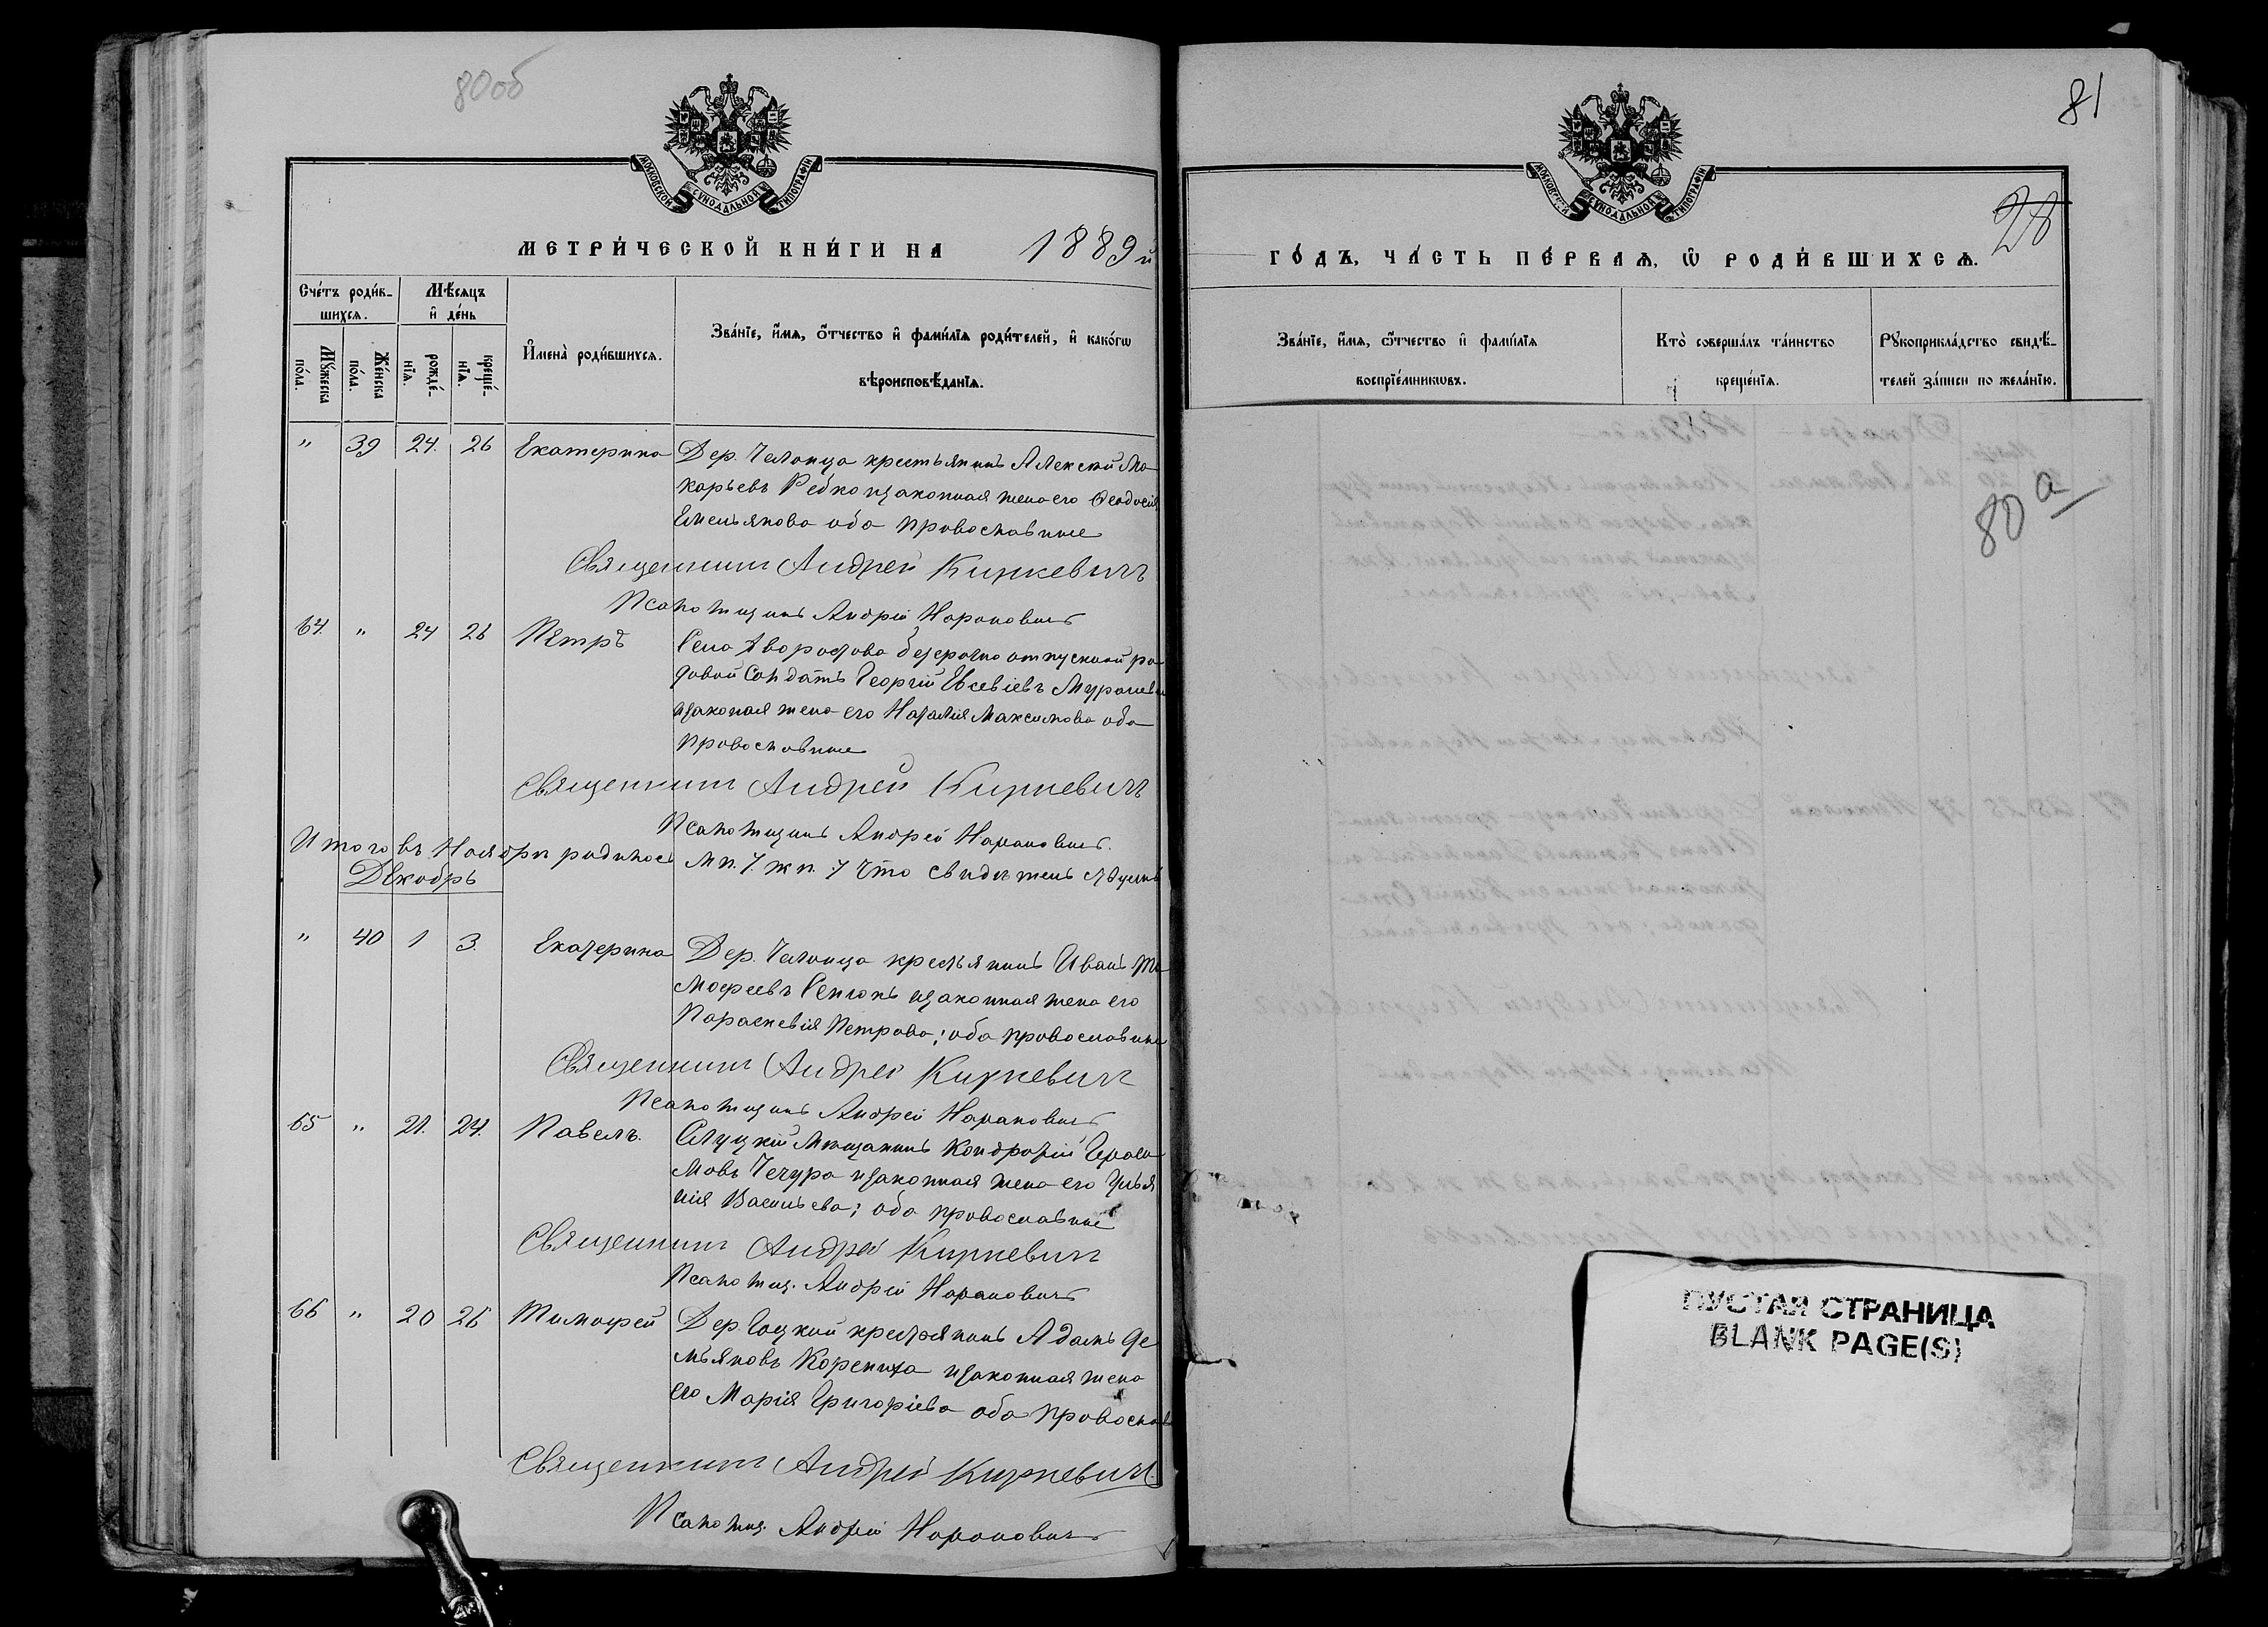 80об
МОСКОВСКОЙ СУНОДАЛЬНОЙ ТИПОГРАФІИ
МЕТРИ́ЧЕСКОЙ КНИ́ГИ НА 1889 й
Сче́тъ роди́в-
шихсѧ.
Мѣ́сѧцъ
и҆ де́нь
Мꙋ́жеска
по́ла.
Же́нска
по́ла.
рожде́-
нїѧ.
креще́-
нїѧ.
И҆мена̀ роди́вшихсѧ.
Зва́нїе, и҆́мѧ, ѻ҆́тчество и҆ фамі́лїѧ роди́телей, и҆ како́гѡ
вѣроисповѣ́данїѧ.
" 39 24. 26 Екатерина Дер. Чалонца крестьянинъ Алексій Ма
карьевъ Редко изаконная жена его Ѳеодосія
Емельянова оба православные
Священникъ Андрей Киркевичъ
Псаломщикъ Андрей Наронович
64. " 24 26 Петръ Села безсрочно отпускной ря
довой Солдатъ Георгій Евсевіевъ
изаконая жена его Наталія Максимова оба
православные
Священникъ Андрей Киркевичъ
Псаломщикъ Андрей Наронович.
Итого въ Ноябрѣ родилось м п. 7. ж п. 7 Что свидѣтель
Декабрь
" 40 1 3. Екатерина Дер. Чалонца крестьянинъ Иванъ Ти
мофеевъ изаконная жена его
Параскевія Петрова; оба православные
Священникъ Андрей Киркевичъ
Псаломщикъ Андрей Наронович
65 " 21. 24. Павелъ. Слуцкій мѣщанинъ Кондратій Гераси
мовъ Чечура изаконная жена его Улья
нія Васильева; оба православные
Священникъ Андрей Киркевичъ
Псаломщ. Андрей Наронович
66 " 20 26 Тимофей Дер. Гоцкий крестьянинъ Адамъ Де
мьяновъ изаконная жена
его Марія Григоріева оба православ
Священникъ Андрей Киркевичъ.
Псаломщ. Андрей Наронович
81
МОСКОВСКОЙ СУНОДАЛЬНОЙ ТИПОГРАФІИ
28
ГО́ДЪ, ЧА́СТЬ ПЕ́РВАѦ, Ѡ҆ РОДИ́ВШИХСѦ.
Зва́нїе, и҆́мѧ, ѻ҆́тчество и҆ фамі́лїѧ
воспрїе́мникѡвъ.
Кто̀ соверша́лъ та́инство
креще́нїѧ.
Рꙋкоприкла́дство свидѣ́-
телей за́писи по жела́нїю.
80а
ПУСТАЯ СТРАНИЦА
BLANK PAGE(S)